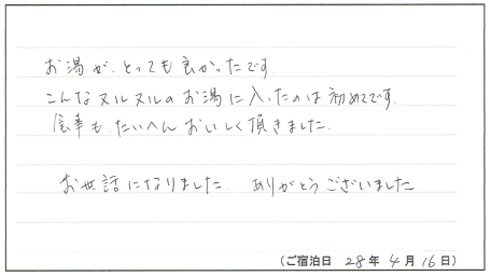 お湯が、とっても良かったです。
こんなヌルヌルのお湯に入ったのは初めてです。
食事も、たいへんおいしく頂きました。
お世話になりました。 ありがとうございました
(ご宿泊日 28年 4月 16日)